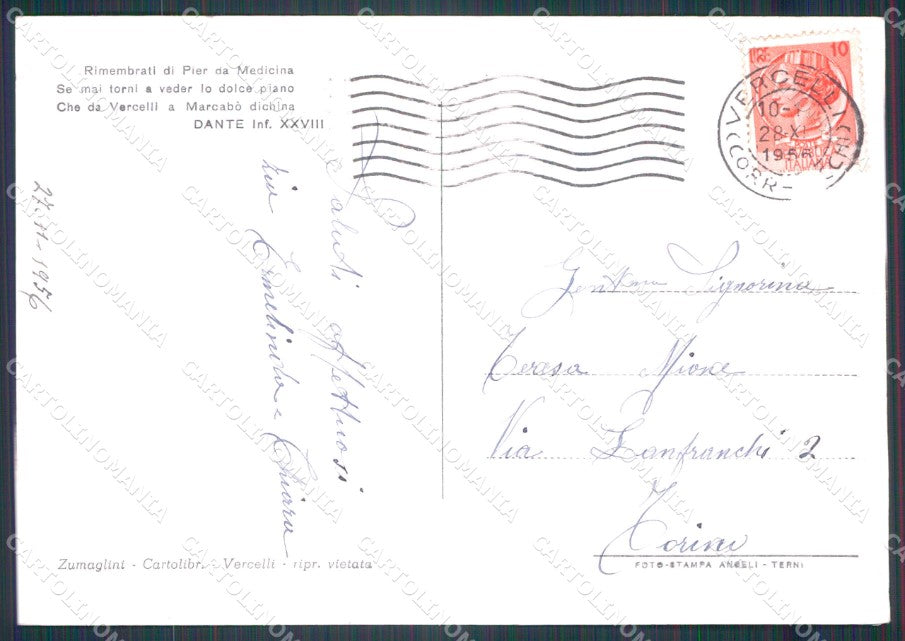 Rimembrati di Pier da Medicina
Se mai torni a veder lo dolce piano
Che da Vercelli a Marcabò dichina
DANTE Inf. XXVIII
27-11-1956
Saluti affettuosi
zia Ermelinda e Chiara
Zumaglini - Cartolibr. - Vercelli - ripr. vietata
10
VERCELLI
10-
28-XI
1956
(CORR-
POSTE
ITALIANE
Gent.ma Signorina
Teresa Mione
Via Lanfranchi 2
Torino
FOTO-STAMPA ANGELI - TERNI
CARTOLINOMANIA